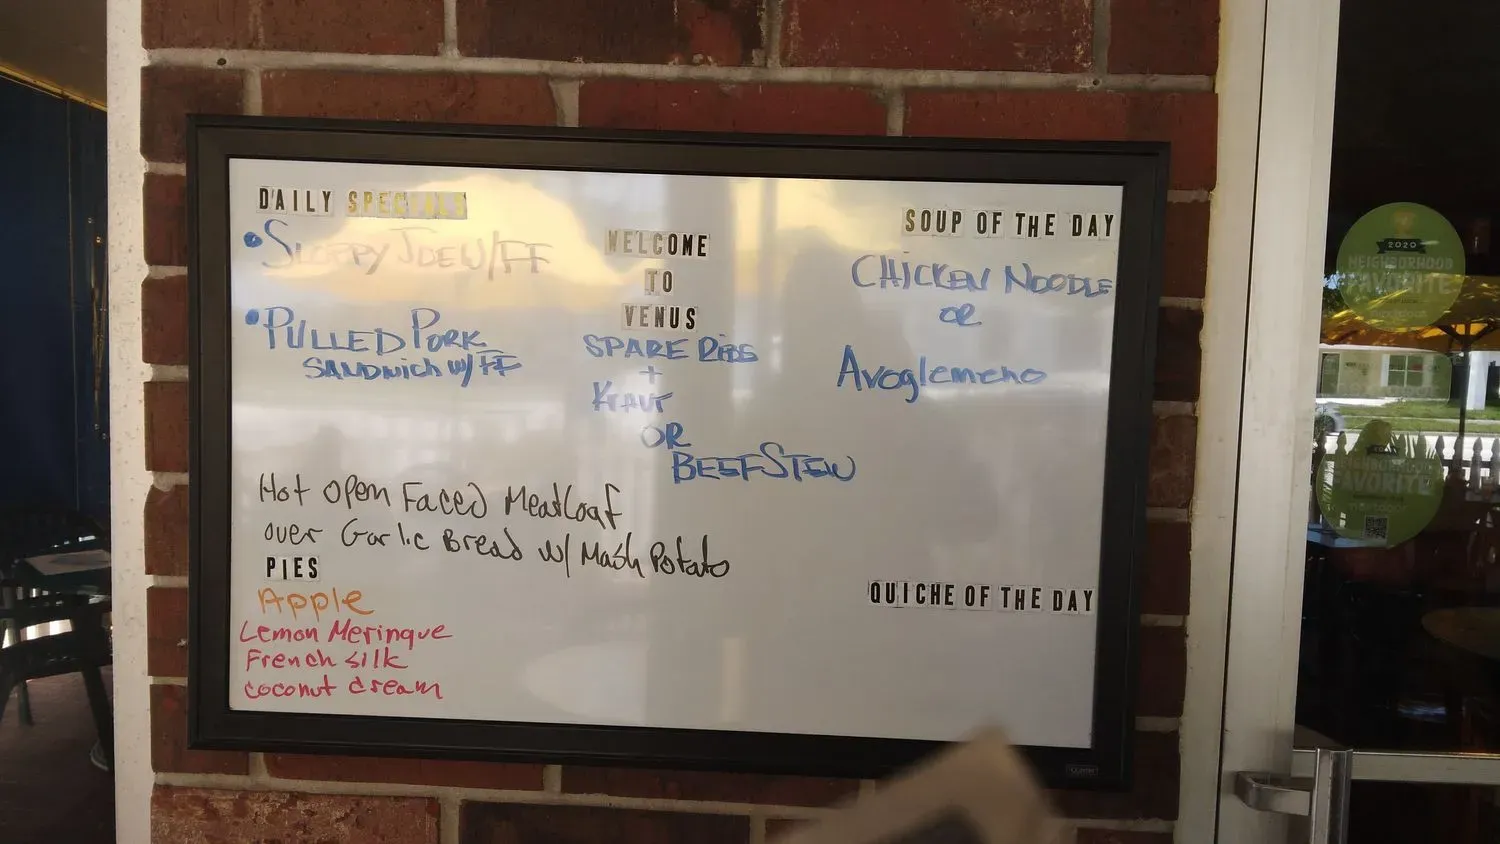 DAILY SPECIALS
• SLOPPY JOE W/FF
• PULLED PORK
SANDWICH W/ FF
WELCOME
TO
VENUS
SPARE RIBS
+
KRAUT
OR
BEEF STEW
SOUP OF THE DAY
CHICKEN NOODLE
OR
Avoglemeno
Hot open Faced Meatloaf
over Garlic Bread w/ Mash Potato
PIES
Apple
Lemon Meringue
French silk
coconut cream
QUICHE OF THE DAY
2020
NEIGHBORHOOD
FAVORITE
NEIGHBORHOOD
FAVORITE